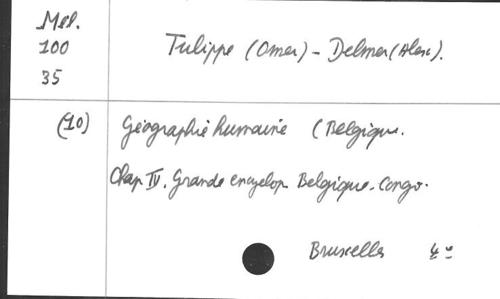 Mel.
100
35
Tulippe (Omer) - Delmer (Alex).
(10)
Géographie humaine (Belgique.
Chap IV. Grande encyclop. Belgique-Congo.
Bruxelles 4º